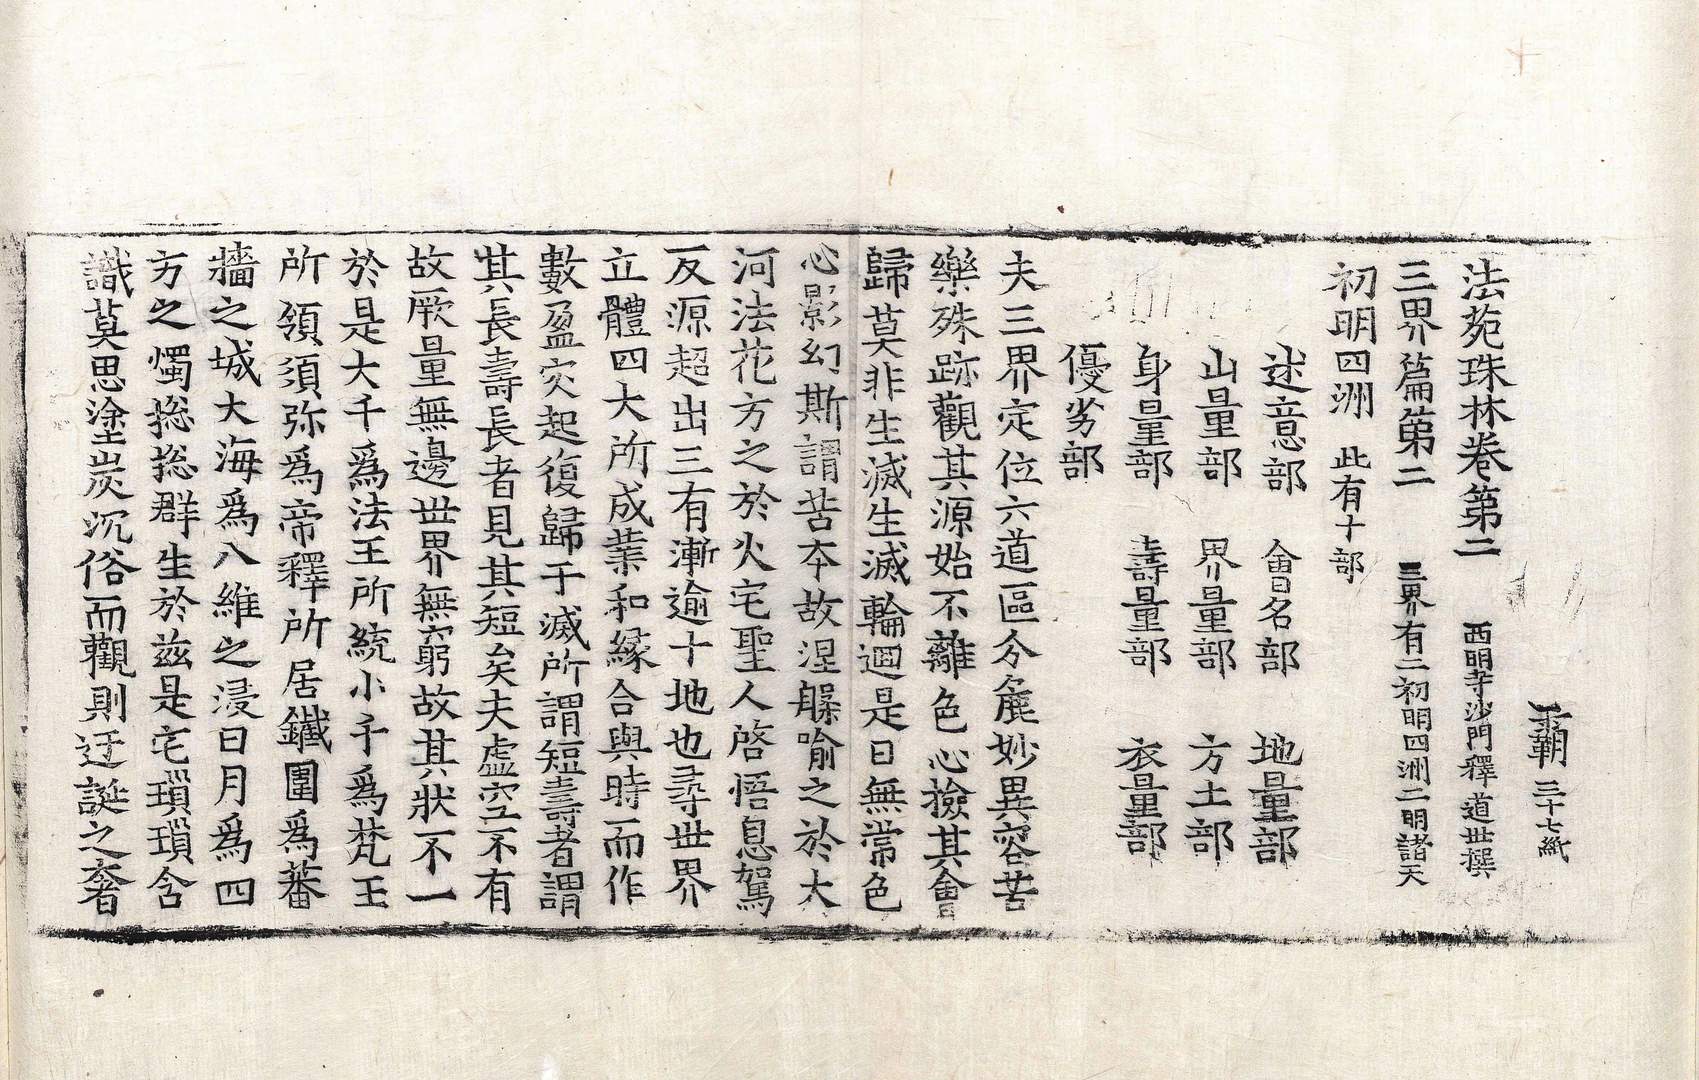 霸 三十七紙
法苑珠林卷第二 西明寺沙門釋道世撰
三界篇第二 三界有二初明四洲二明諸天
初明四洲 此有十部
述意部 會名部 地量部
山量部 界量部 方土部
身量部 壽量部 衣量部
優劣部
夫三界定位六道區分麁妙異容苦
樂殊跡觀其源始不離色心撿其會
歸莫非生滅生滅輪迴是曰無常色
心影幻斯謂苦本故涅槃喻之於大
河法花方之於火宅聖人啓悟息駕
反源超出三有漸逾十地也尋世界
立體四大所成業和緣合與時而作
數盈灾起復歸于滅所謂短壽者謂
其長壽長者見其短矣夫虛空不有
故厥量無邊世界無窮故其狀不一
於是大千爲法王所統小千爲梵王
所領須弥爲帝釋所居鐵圍爲蕃
牆之城大海爲八維之浸日月爲四
方之燭捴捴群生於茲是宅瑣瑣含
識莫思塗炭沉俗而觀則迂誕之奢